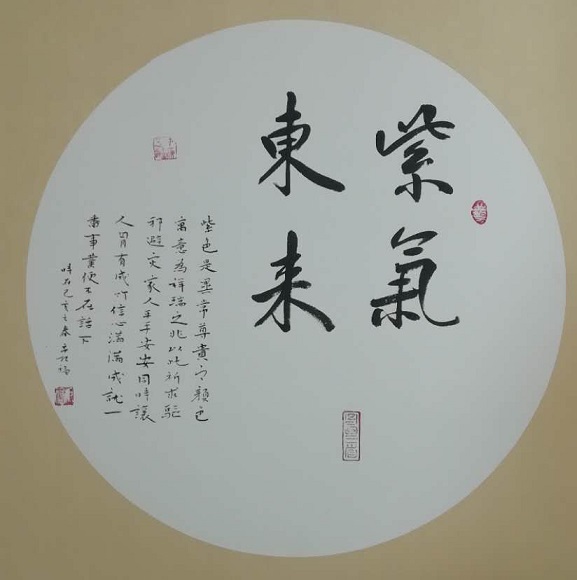 紫氣
東来
紫色是異常尊貴之顏色
寓意為祥瑞之兆以此祈求驅
邪避灾家人平平安安同時讓
人冐有成竹信心滿滿成就一
番事業便不在話下
時在己亥之春